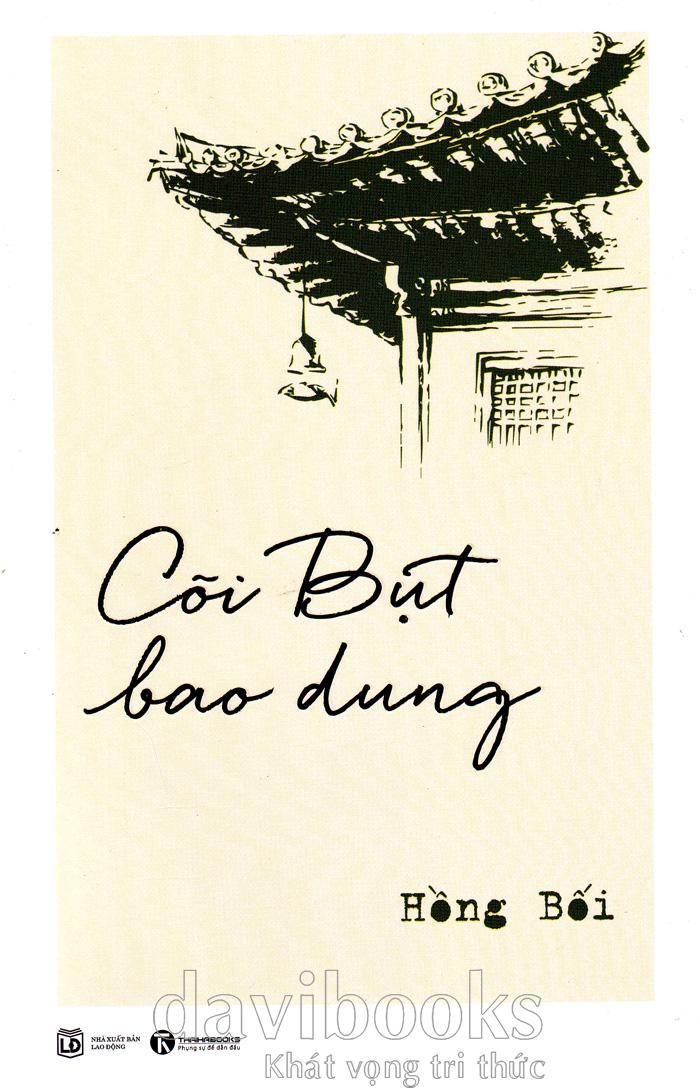 Cõi Bụt
bao dung
Hồng Bối
davibooks
Khát vọng tri thức
LĐ
NHÀ XUẤT BẢN
LAO ĐỘNG
THAIHABOOKS
Phụng sự để dẫn đầu